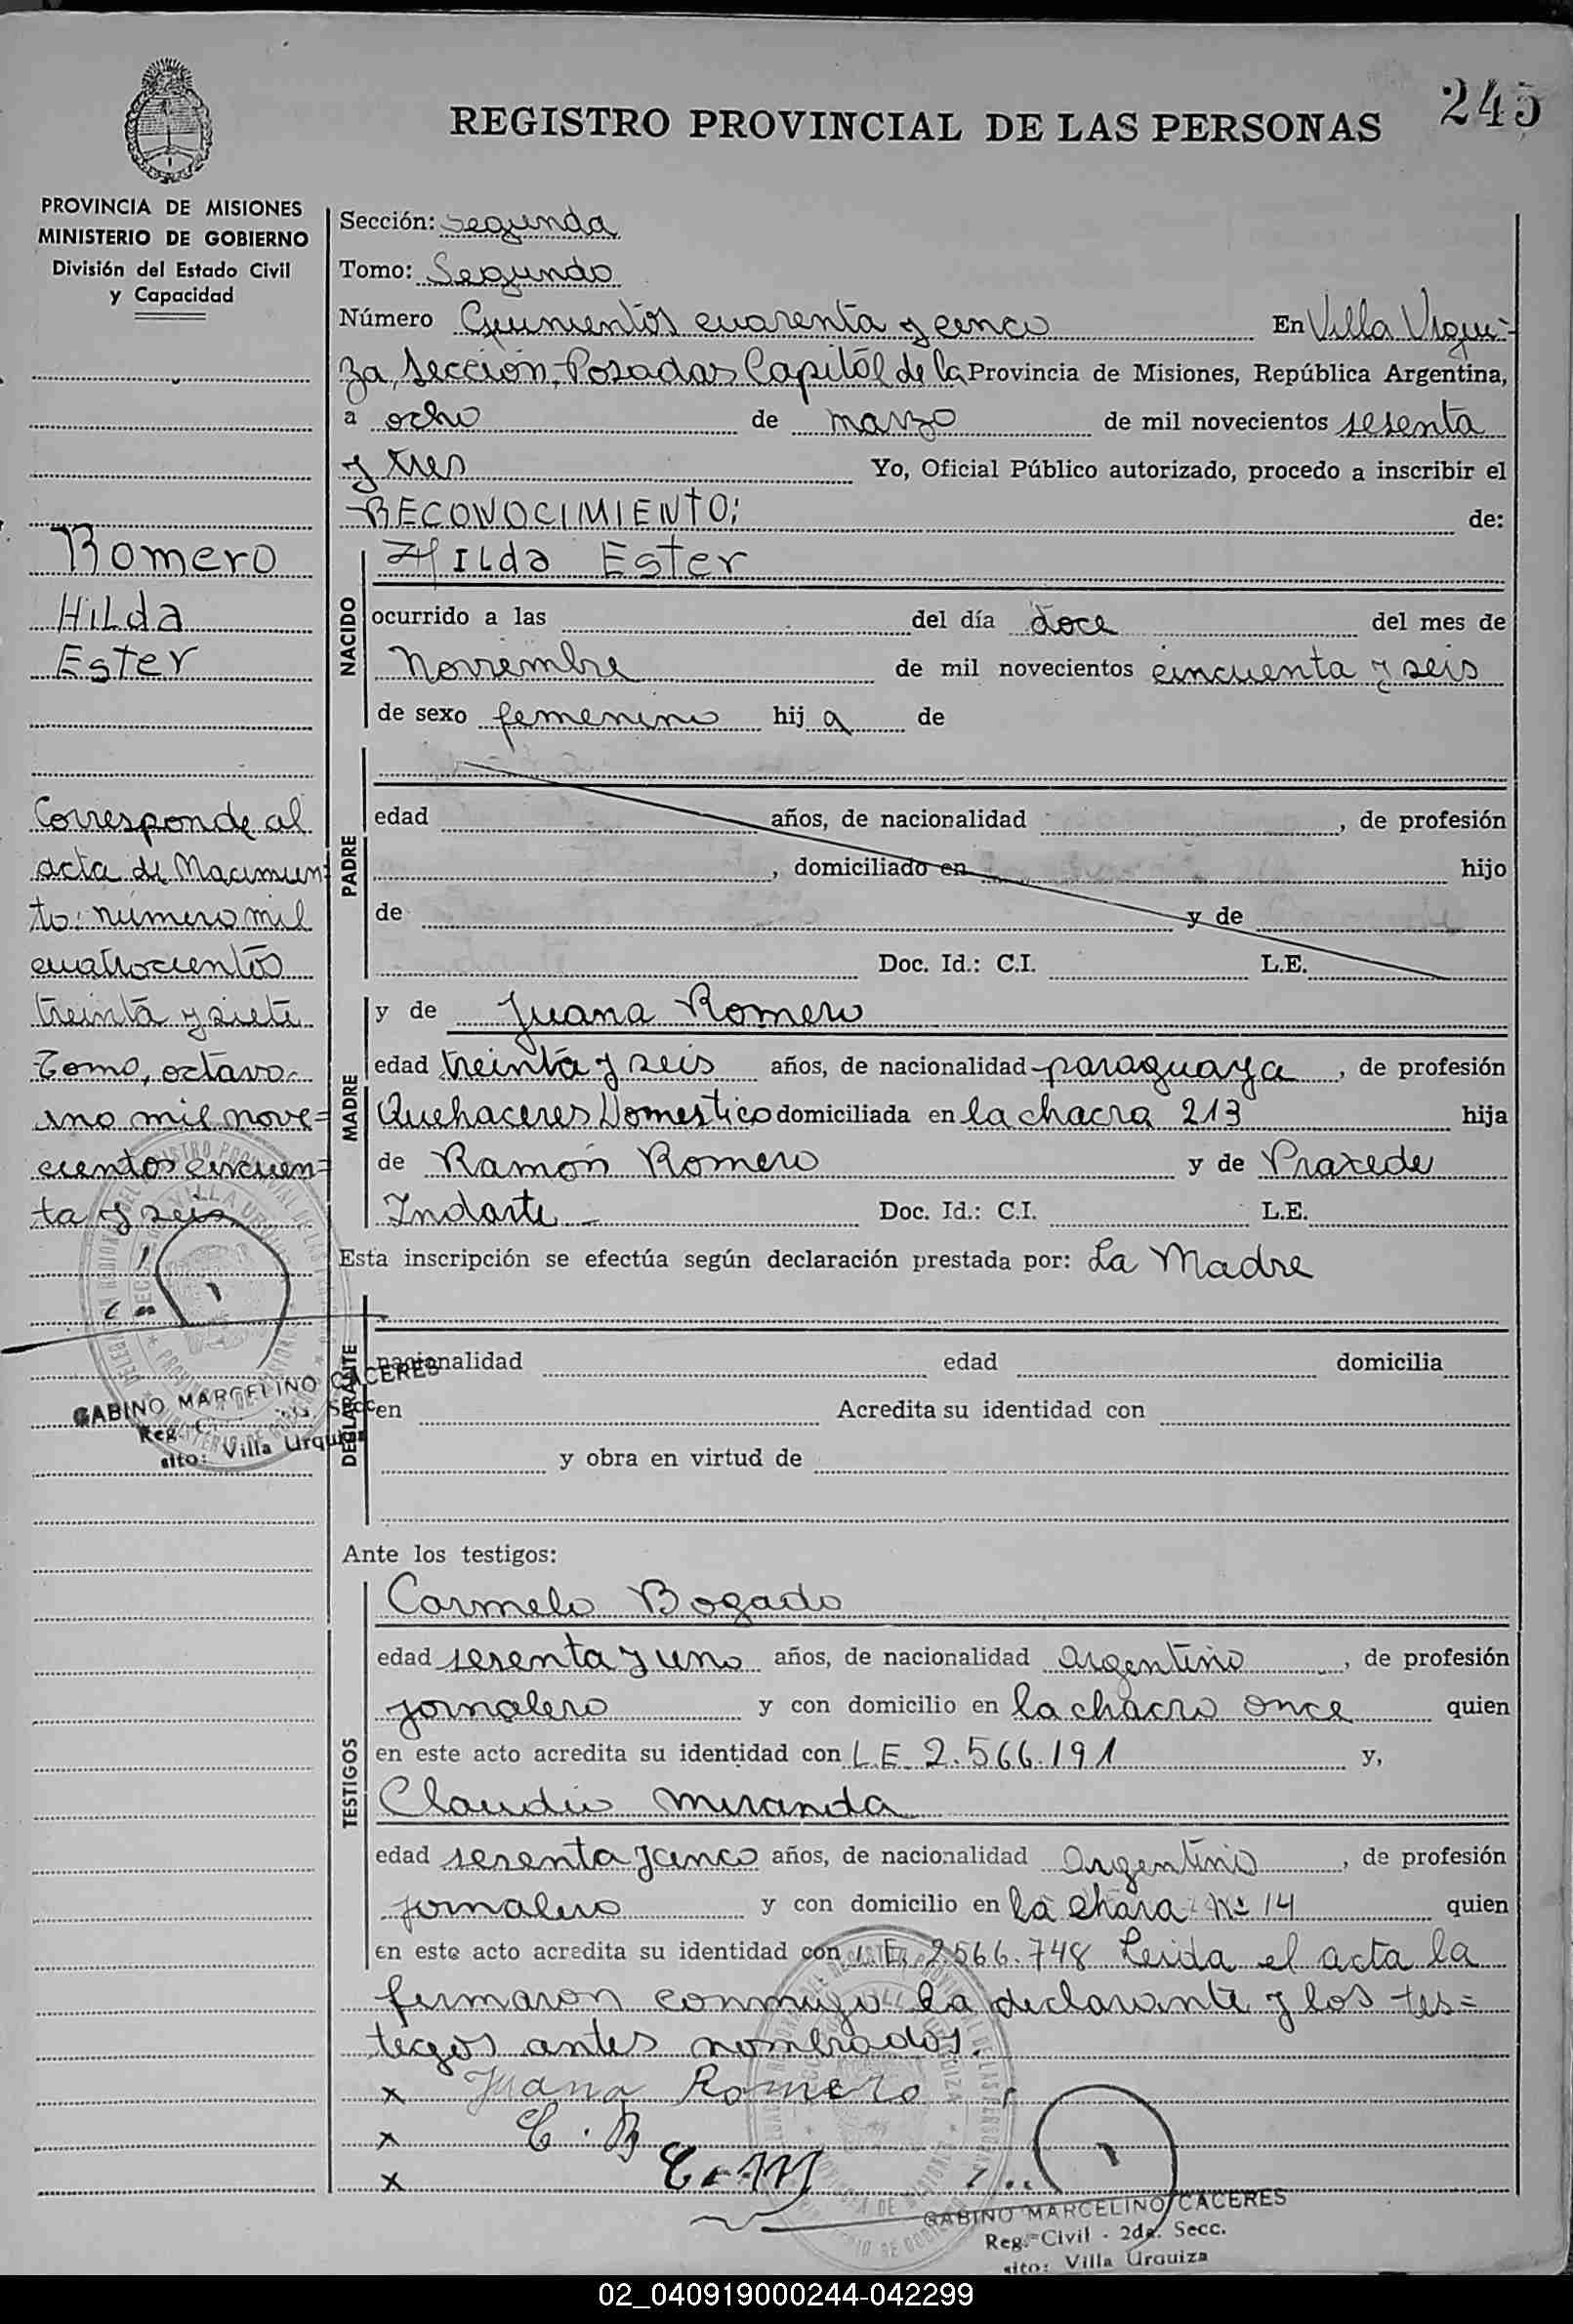 245
REGISTRO PROVINCIAL DE LAS PERSONAS
PROVINCIA DE MISIONES
MINISTERIO DE GOBIERNO
División del Estado Civil
y Capacidad
Romero
Hilda
Ester
Corresponde al
acta de Nacimien
to: número mil
cuatrocientos
treinta y siete
Tomo, octavo
ano mil nove=
cientos cincuen=
ta y seis
GABINO MARCELINO CACERES
Reg. C Secc.
sito: Villa Urquiza
Sección: segunda
Tomo: Segundo
Número Quinientos cuarenta y cinco En Villa Urqui-
za, Sección, Posadas Capitál de la Provincia de Misiones, República Argentina,
a ocho de marzo de mil novecientos sesenta
y tres Yo, Oficial Público autorizado, procedo a inscribir el
RECONOCIMIENTO: de:
NACIDO
Hilda Ester
ocurrido a las del día doce del mes de
Noviembre de mil novecientos cincuenta y seis
de sexo femenino hij a de
PADRE
edad años, de nacionalidad , de profesión
, domiciliado en hijo
de y de
Doc. Id.: C.I. L.E.
MADRE
y de Juana Romero
edad treinta y seis años, de nacionalidad paraguaya , de profesión
Quehaceres Domestico domiciliada en la chacra 213 hija
de Ramón Romero y de Praxede
Indarte Doc. Id.: C.I. L.E.
Esta inscripción se efectúa según declaración prestada por: La Madre
DECLARANTE
nacionalidad edad domicilia
en Acredita su identidad con
y obra en virtud de
Ante los testigos:
TESTIGOS
Carmelo Bogado
edad sesenta y uno años, de nacionalidad Argentino , de profesión
jornalero y con domicilio en la chacra once quien
en este acto acredita su identidad con L.E. 2.566.191 y,
Claudio Miranda
edad sesenta y cinco años, de nacionalidad Argentino , de profesión
jornalero y con domicilio en la chara Nº 14 quien
en este acto acredita su identidad con L.E. 2.566.748 Leida el acta la
firmaron conmigo la declarante y los tes=
tigos antes nombrados.
x Juana Romero
x C. B
x C. M
GABINO MARCELINO CACERES
Reg. Civil - 2da. Secc.
sito: Villa Urquiza
02_040919000244-042299